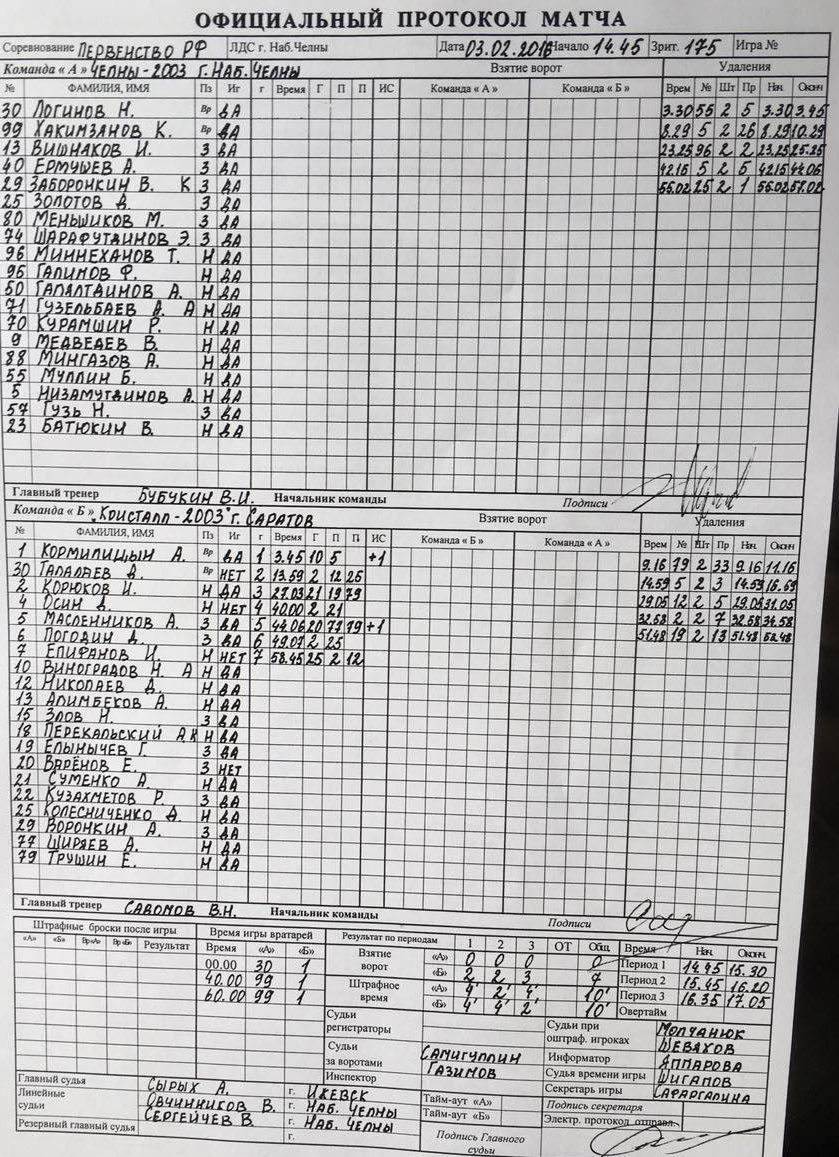 ОФИЦИАЛЬНЫЙ ПРОТОКОЛ МАТЧА
Соревнование ПЕРВЕНСТВО РФ ЛДС г. Наб.Челны Дата 03.02.2016 Начало 14.45 Зрит. 175 Игра №
Команда «А» ЧЕЛНЫ-2003 Г. НАБ. ЧЕЛНЫ Взятие ворот Удаления
№ ФАМИЛИЯ, ИМЯ Пз Иг г Время Г П П ИС Команда «А» Команда «Б» Врем № Шт Пр Нач. Оконч
30 ЛОГИНОВ Н. Вр ДА 3.30 55 2 5 3.30 3.45
99 ХАКИМЗАНОВ К. Вр ДА 8.29 5 2 26 8.29 10.29
13 ВИШНАКОВ И. З ДА 23.25 96 2 2 23.25 25.25
40 ЕРМУШЕВ А. З ДА 42.15 5 2 5 42.15 44.06
29 ЗАБОРОНКИН В. К З ДА 55.02 25 2 1 55.02 57.02
25 ЗОЛОТОВ Д. З ДА
80 МЕНЬШИКОВ М. З ДА
74 ШАРАФУТДИНОВ Э. З ДА
96 МИННЕХАНОВ Т. Н ДА
95 ГАЛИМОВ Ф. Н ДА
50 ГАЛЯЛТДИНОВ А. Н ДА
71 ГУЗЕЛЬБАЕВ Д. А Н ДА
70 КУРАМШИН Р. Н ДА
9 МЕДВЕДЕВ В. Н ДА
88 МИНГАЗОВ А. Н ДА
55 МУЛЛИН Б. Н ДА
5 НИЗАМУТДИНОВ А. Н ДА
57 ГУЗЬ Н. З ДА
23 БАТЮКИН В. Н ДА
Главный тренер БУБУКИН В.И. Начальник команды Подписи
Команда «Б» "КРИСТАЛЛ-2003" Г. САРАТОВ Взятие ворот Удаления
№ ФАМИЛИЯ, ИМЯ Пз Иг г Время Г П П ИС Команда «Б» Команда «А» Врем № Шт Пр Нач Оконч
1 КОРМИЛИЦЫН А. Вр ДА 1 3.45 10 5 +1 9.16 79 2 33 9.16 11.16
30 ТАЛАЛАЕВ Д. Вр НЕТ 2 13.59 2 12 25 14.59 5 2 3 14.59 16.59
2 КОРЮКОВ И. Н ДА 3 27.03 21 19 79 29.05 12 2 5 29.05 31.05
4 ОСИН Д. Н НЕТ 4 40.00 2 21 32.58 2 2 7 32.58 34.58
5 МАСЛЕННИКОВ А. З ДА 5 44.06 20 77 79 +1 51.48 19 2 13 51.48 52.48
6 ПОГОДИН Д. З ДА 6 49.07 2 25
7 ЕПИФАНОВ И. Н НЕТ 7 58.45 25 2 12
10 ВИНОГРАДОВ Н. А Н ДА
12 НИКОЛАЕВ Д. Н ДА
13 АЛИМБЕКОВ А. Н ДА
15 ЗЛОВ Н. З ДА
18 ПЕРЕКАЛЬСКИЙ А К Н ДА
19 ЕЛЫНЫЧЕВ Г. З ДА
20 ВАРЁНОВ Е. З НЕТ
21 СУМЕНКО А. Н ДА
22 КУЗАХМЕТОВ Р. З ДА
25 КОЛЕСНИЧЕНКО Д. Н ДА
29 ВОРОНКИН А. З ДА
77 ШИРЯЕВ А. Н ДА
79 ТРУШИН Е. Н ДА
Главный тренер САВОМОВ В.Н. Начальник команды Подписи
Штрафные броски после игры Время игры вратарей Результат по периодам 1 2 3 ОТ Общ Время Нач. Оконч.
«А» «Б» Вр«А» Вр«Б» Результат Время «А» «Б» Взятие ворот «А» 0 0 0 0 Период 1 14.45 15.30
00.00 30 1 «Б» 2 2 3 7 Период 2 15.45 16.20
40.00 99 1 Штрафное время «А» 4' 2' 4' 10' Период 3 16.35 17.05
60.00 99 1 «Б» 4' 4' 2' 10' Овертайм
Судьи регистраторы Судьи при оштраф. игроках МОЛЧАНЮК
ШЕВАХОВ
Судьи за воротами САМИГУЛЛИН Информатор АППАРОВА
ГАЗИМОВ Судья времени игры ШИГАПОВ
Инспектор Секретарь игры САФАРГАЛИНА
Главный судья СЫРЫХ А. г. ИЖЕВСК Тайм-аут «А» Подпись секретаря
Линейные судьи ОВЧИННИКОВ В. г. НАБ. ЧЕЛНЫ Тайм-аут «Б» Электр. протокол отправл.
СЕРГЕЙЧЕВ В. г. НАБ. ЧЕЛНЫ
Резервный главный судья г. Подпись Главного судьи